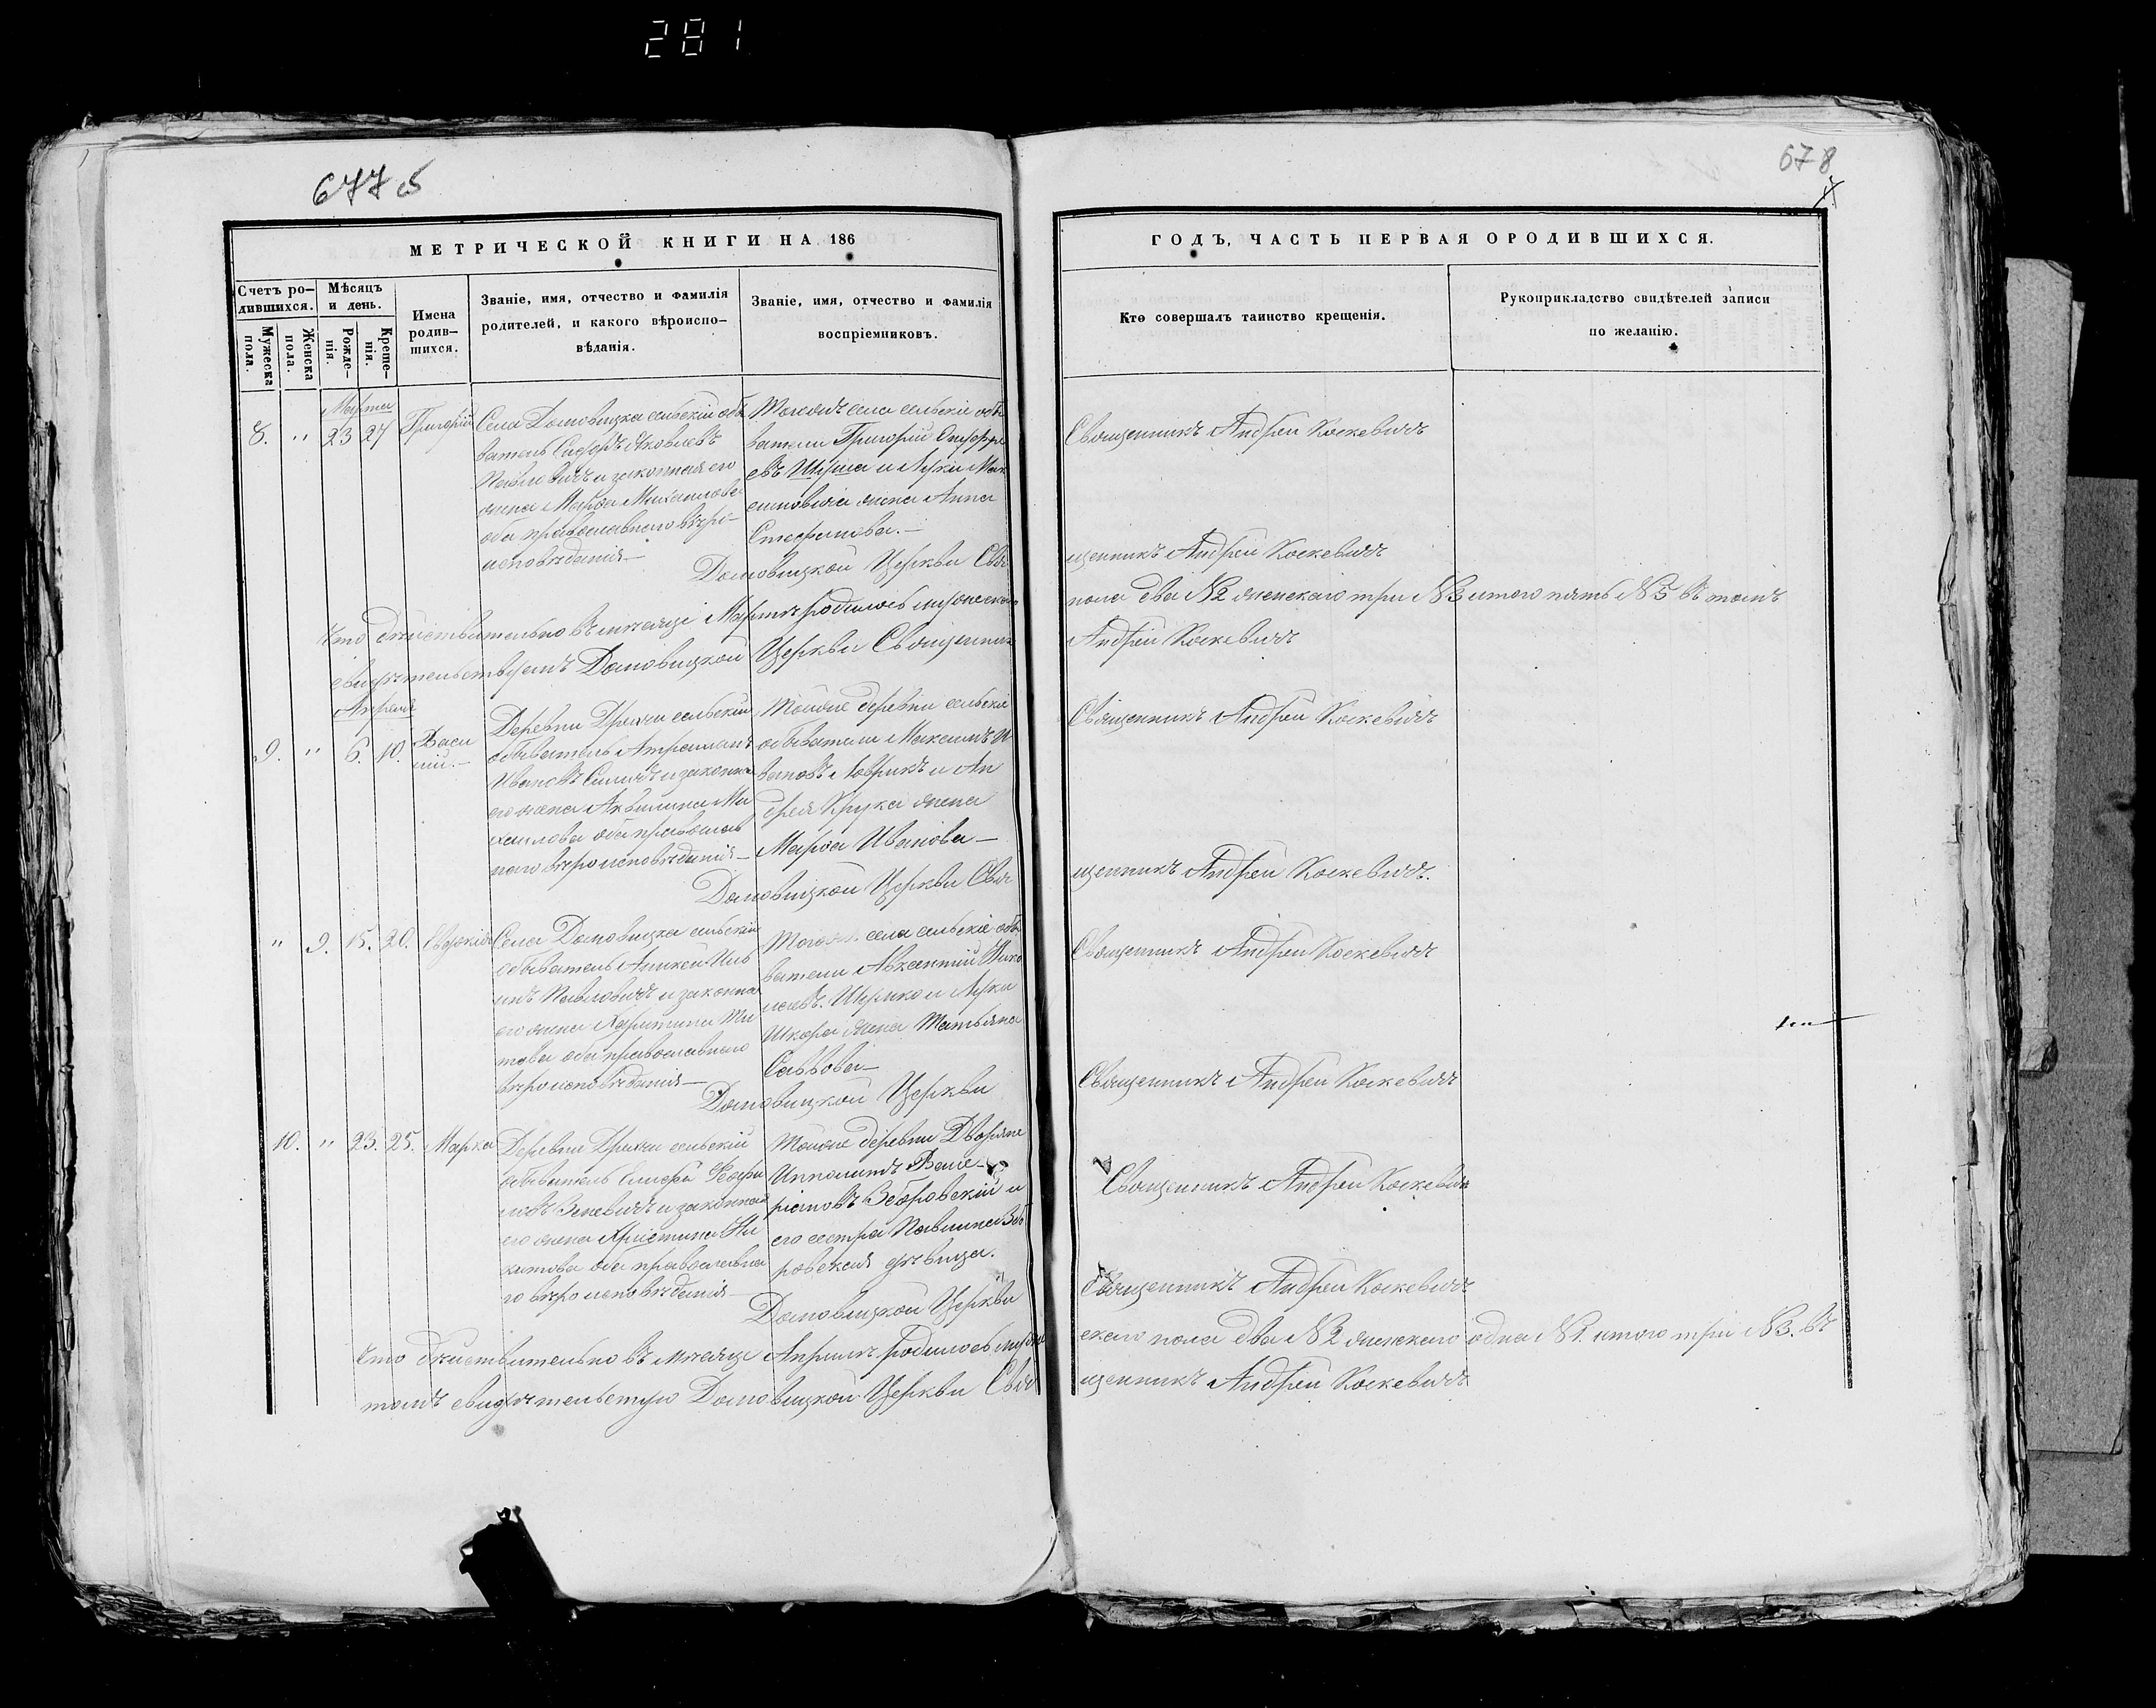 281
677 об
678
МЕТРИЧЕСКОЙ КНИГИ НА 186
ГОДЪ, ЧАСТЬ ПЕРВАЯ О РОДИВШИХСЯ.
Счетъ ро-
дившихся.
Мужеска
пола.
Женска
пола.
Мѣсяцъ
и день.
Рожде-
нія.
Креще-
нія.
Имена
родив-
шихся.
Званіе, имя, отчество и фамилія
родителей, и какого вѣроиспо-
вѣданія.
Званіе, имя, отчество и фамилія
воспріемниковъ.
Кто совершалъ таинство крещенія.
Рукоприкладство свидѣтелей записи
по желанію.
Марта
8. " 23 27 Григорій
Села Домовицка сельскій обы
ватель Сидоръ Яковлевъ
и законная его
жена Марѳа Михаилова
оба православнаго вѣро-
исповѣданія—
Тогожъ села сельскіе обы
ватели Григорій
евъ и Луки Мак
симовича жена Анна
Стефанова.—
Священникъ Андрей Коскевичъ
Домовицкой Церкви Свя
щенникъ Андрей Коскевичъ
Что дѣйствительно въ мѣсяцѣ Мартѣ родилось мужеска
пола два №2 женскаго три №3 итого пять №5 въ томъ
свидѣтельствуемъ Домовицкой Церкви Священник
Андрей Коскевичъ
Апреля
9. " 6. 10. Васи
лій.—
Деревни сельскій
обыватель
Ивановъ и законна
его жена Аквилина Ми
хаилова оба православ
наго вѣроисповѣданія—
Тойже деревни сельскіе
обыватели Максимъ И
вановъ Лаврикъ и Ан
дрея Крука жена
Марѳа Иванова—
Священникъ Андрей Коскевичъ
Домовицкой Церкви Свя
щенникъ Андрей Коскевичъ.
" 9. 15. 20. Евдокія
Села Домовицка сельскій
обыватель
Павловичъ и законна
его жена Харитина Ти
това оба православнаго
вѣроисповѣданія—
Тогожъ села сельскіе обы
ватели Авксентій Яков
левъ и Луки
жена Татьяна
Саввова—
Священникъ Андрей Коскевичъ
Домовицкой Церкви
Священникъ Андрей Коскевичъ
10. " 23. 25. Марка
Деревни сельскій
обыватель
и законная
его жена Христина Ни
китова оба православна
го вѣроисповѣданія—
Тойже деревни Дворяне
Ипполитъ Вале-
ріановъ Зебровскій и
его сестра Павлина Зеб
ровская дѣвица.
Священникъ Андрей Коскевичъ
Домовицкой Церкви
Священникъ Андрей Коскевичъ
Что дѣйствительно въ мѣсяцѣ Априлѣ родилось муже
скаго пола два №2 женскаго одна №1. итого три №3. въ
томъ свидѣтельствую Домовицкой Церкви Свя
щенникъ Андрей Коскевичъ